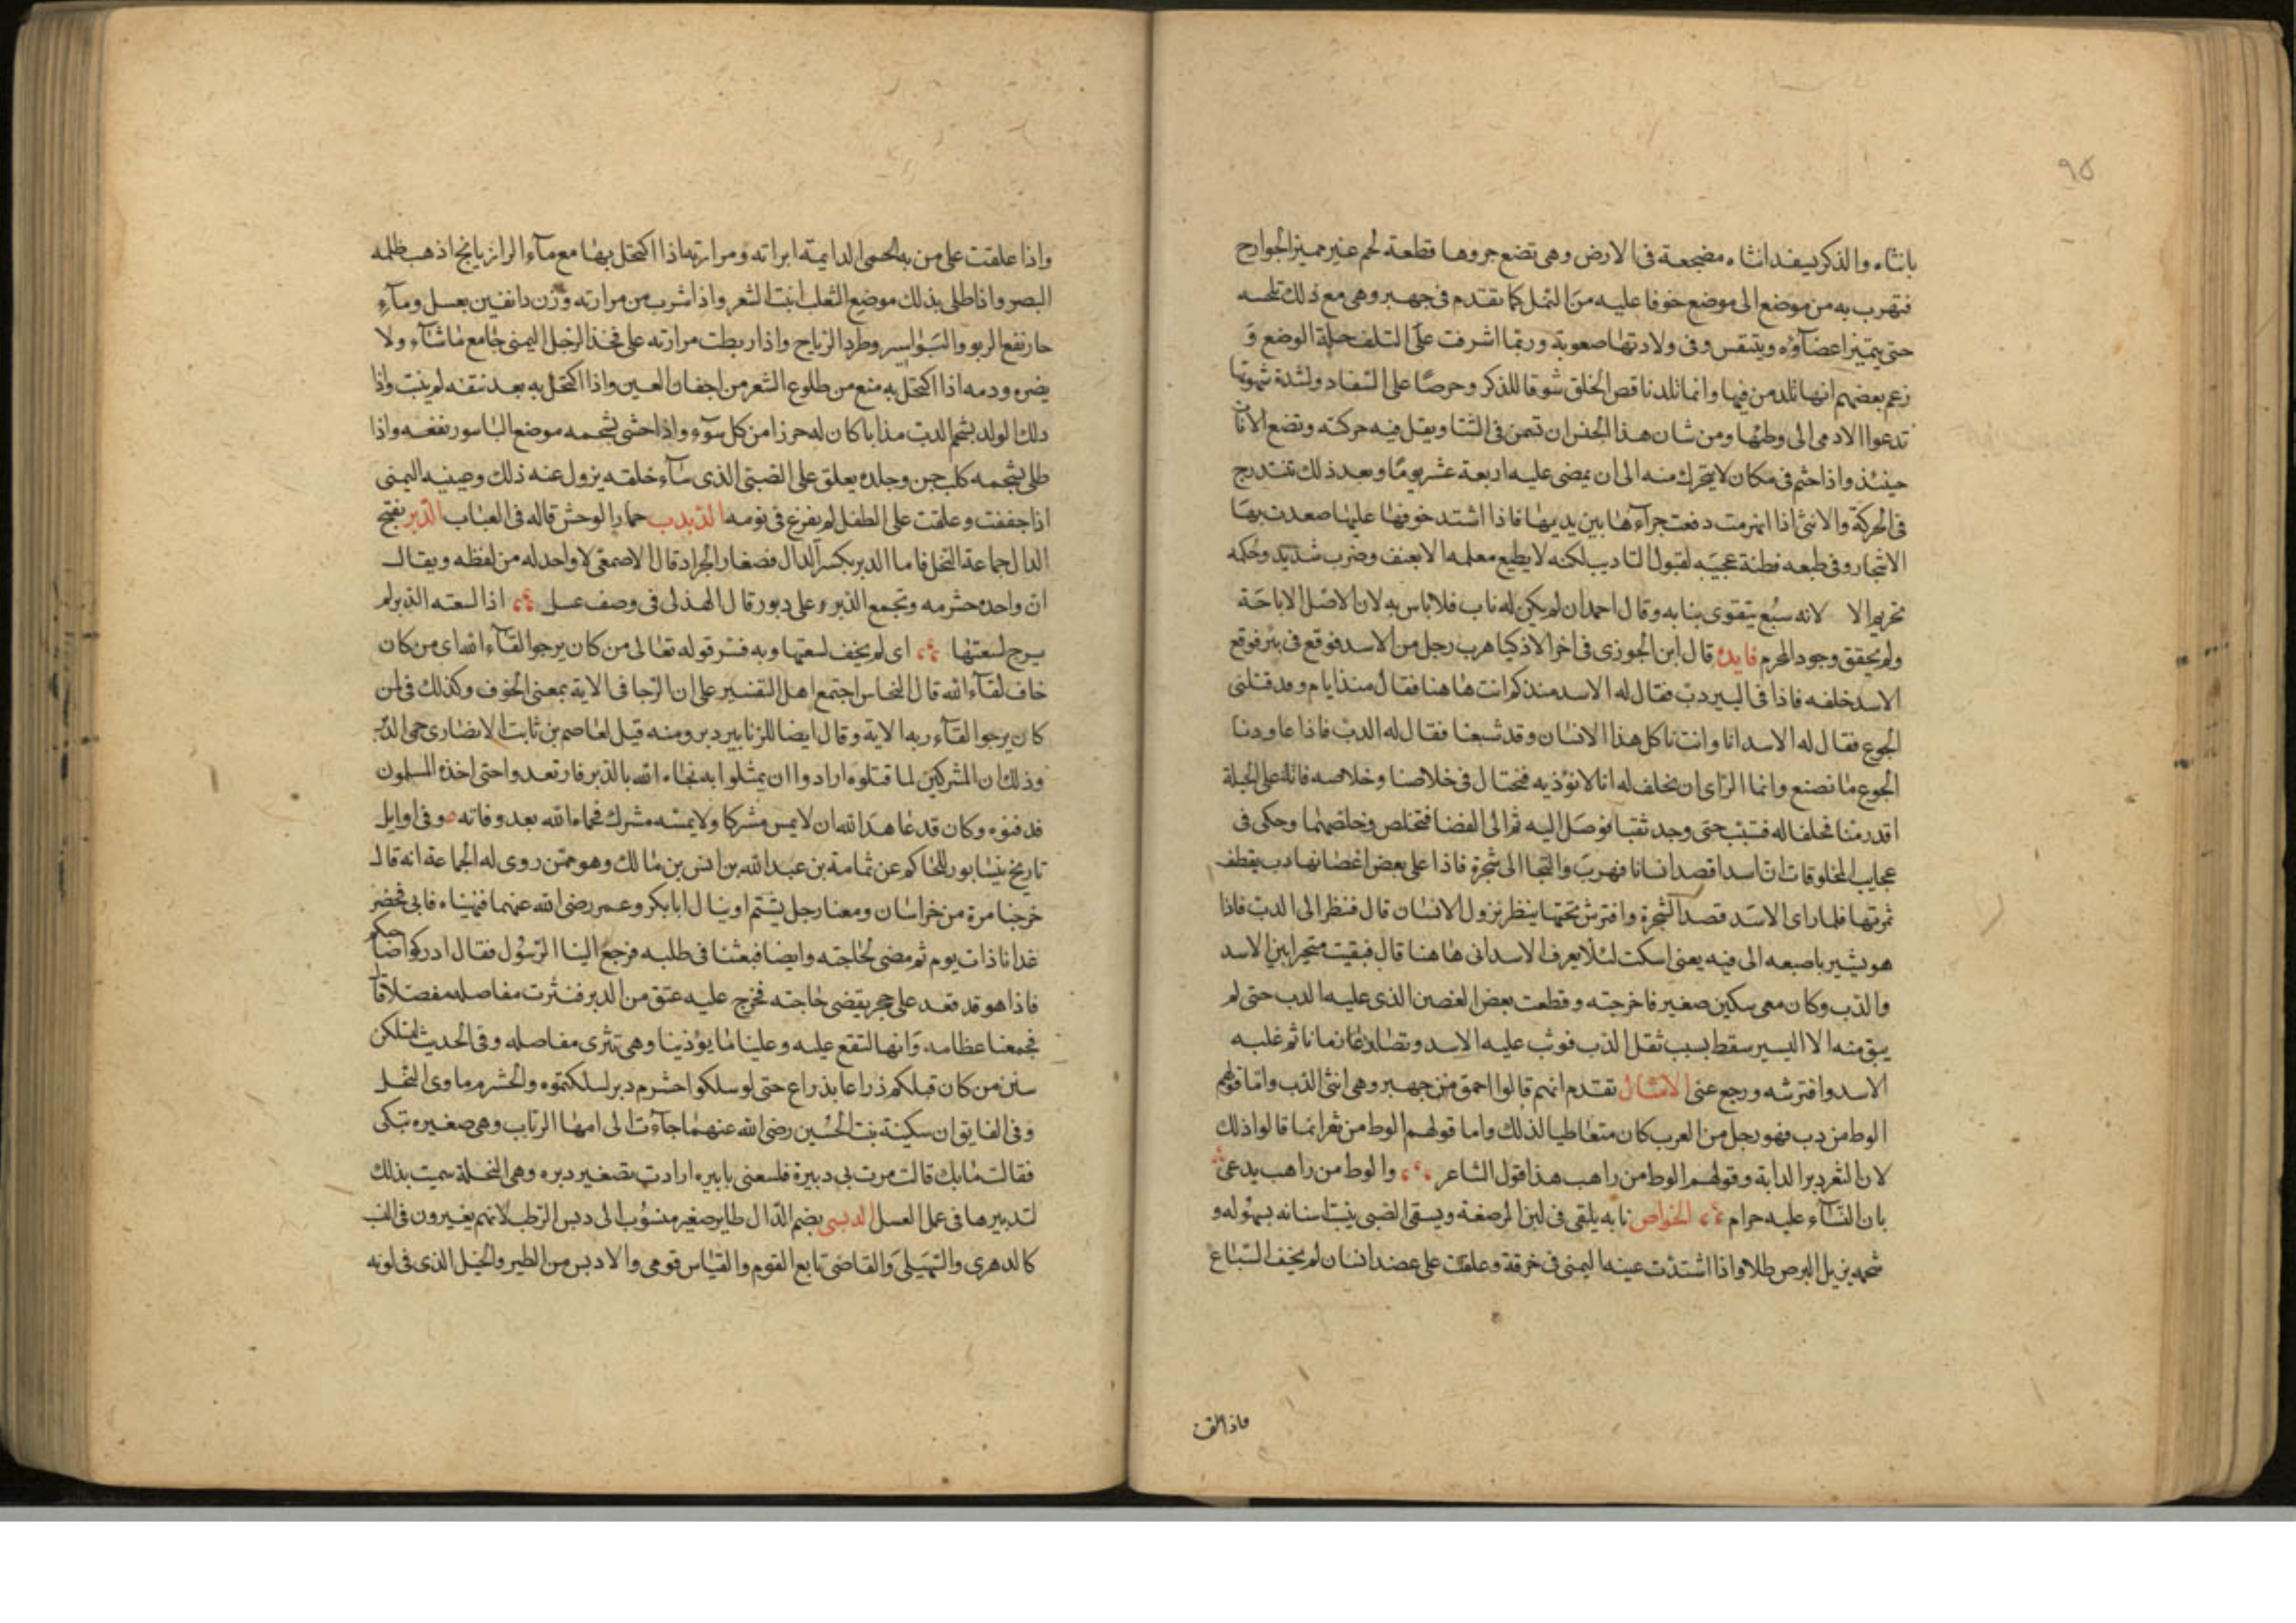 ٩٥
بانثاه والذكر يسفد انثاه مضجعة فى الارض وهى تضع جروها قطعة لحم غير مميز الجوارح
فتهرب به من موضع الى موضع خوفا عليه من النمل كما تقدم فى جهبر وهى مع ذلك تلحسه
حتى يتميز اعضآؤه ويتنفس وفى ولادتها صعوبة وربما اشرفت على التلف حيلة الوضع و
زعم بعضهم انها تلد من فيها وانما تلد ناقص الخلق شوقا للذكر وحرصا على السفاد ولشدة شهوتها
تدعوا الادمى الى وطئها ومن شان هذا الجنس ان تسمن فى الشتا ويقل فيه حركته وتضع الاناث
حينئذ واذا جثم فى مكان لا يتحرك منه الى ان يمضى عليه اربعة عشر يوما وبعد ذلك تتدرج
فى الحركة والانثى اذا انهزمت دفعت جرآءها بين يديها فاذا اشتد خوفها عليها صعدت بها
الاشجار وفى طبعه فطنة عجيبه لقبول التاديب لكنه لا يطيع معلمه الا بعنف وضرب شديد وحكمه
تحريم الا لانه سبع يتقوى بنابه وقال احمد ان لم يكن له ناب فلا باس به لان الاصل الاباحة
ولم يتحقق وجود المحرم فايده قال ابن الجوزى فى اخر الاذكيا هرب رجل من الاسد فوقع فى بئر فوقع
الاسد خلفه فاذا فى البير دب فقال له الاسد منذ كم انت هاهنا فقال منذ ايام وقد قتلنى
الجوع فقال له الاسد انا وانت ناكل هذا الانسان وقد شبعنا فقال له الدب فاذا عاودنا
الجوع ما نصنع وانما الراى ان نحلف له انا لا نؤذيه فنحتال فى خلاصنا وخلاصه فانه على الحيلة
اقدر منا فحلفا له فتشبث حتى وجد ثقبا فوصل اليه ثم الى الفضا فتخلص وخلصهما وحكى فى
عجايب المخلوقات ان اسدا قصد انسانا فهرب والتجا الى شجرة فاذا على بعض اغصانها دب يقطف
ثمرتها فلما راى الاسد قصد الشجرة وافترش تحتها ينظر نزول الانسان قال فنظر الى الدب فاذا
هو يشير باصبعه الى فيه يعنى اسكت لئلا يعرف الاسد انى هاهنا قال فبقيت متحيرا بين الاسد
والدب وكان معى سكين صغير فاخرجته وقطعت بعض الغصن الذى عليه الدب حتى لم
يبق منه الا اليسير سقط بسبب ثقل الدب فوثب عليه الاسد وتصارعا زمانا ثم غلبه
الاسد وافترسه ورجع عنى الامثال تقدم انهم قالوا احمق من جهبر وهى انثى الدب واما قولهم
الوط من دب فهو رجل من العرب كان متعاطيا لذلك واما قولهم الوط من ثفر انما قالوا ذلك
لان الثفر دبر الدابة وقولهم الوط من راهب هذا قول الشاعر والوط من راهب يدعى
بان النسآء عليه حرام الخواص نابه يلقى فى لبن المرضعة ويسقى الصبى ينبت اسنانه بسهوله و
شحمه يزيل البرص طلا واذا اشتدت عينه اليمنى فى خرقة وعلقت على عضد انسان لم يخف السباع
واذا علقت على من به الحمى الدايمة ابراته ومرارته اذا اكتحل بها مع مآء الرازيانج اذهب ظلمه
البصر واذا طلى بذلك موضع الثعلب انبت الشعر واذا شرب من مرارته وزن دانقين بعسل ومآء
حار نفع الربو والبواسير وطرد الرياح واذا ربطت مرارته على فخذ الرجل اليمنى جامع ما شآء ولا
يضره ودمه اذا اكتحل به منع من طلوع الشعر من اجفان العين واذا اكتحل به بعد نتفه لم ينبت واذا
دلك الولد بشحم الدب مذابا كان له حرزا من كل سوء واذا حشى بشحمه موضع الباسور نفعه واذا
طلى بشحمه كلب جن وجلده يعلق على الصبى الذى سآء خلقه يزول عنه ذلك وعينه اليمنى
اذا جففت وعلقت على الطفل لم يفزع فى نومه الدبدب حمار الوحش قاله فى العباب الدبر بفتح
الدال جماعة النحل فاما الدبر بكسر الدال فصغار الجراد قال الاصمعى لا واحد له من لفظه ويقال
ان واحده خشرمه وتجمع الدبر على دبور قال الهذلى فى وصف عسل اذا لسعته الدبر لم
يرج لسعتها اى لم يخف لسعتها وبه فسر قوله تعالى من كان يرجوا لقآء الله اى من كان
خاف لقآء الله قال النحاس اجتمع اهل التفسير على ان الرجا فى الاية بمعنى الخوف وكذلك فمن
كان يرجوا لقآء ربه الاية وقال ايضا للزنابير دبر ومنه قيل لعاصم بن ثابت الانصارى حمى الدبر
وذلك ان المشركين لما قتلوه ارادوا ان يمثلوا به فجاه الله بالدبر فارتعدوا حتى اخذه المسلمون
فدفنوه وكان قد عاهد الله ان لا يمس مشركا ولا يمسه مشرك فحماه الله بعد وفاته وفى اوايل
تاريخ نيسابور للحاكم عن ثمامة بن عبد الله بن انس بن مالك وهو ممن روى له الجماعة انه قال
خرجنا مرة من خراسان ومعنا رجل يشتم او ينال ابابكر وعمر رضى الله عنهما فنهيناه فابى فحضر
غدانا ذات يوم ثم مضى لحاجته وايضا فبعثنا فى طلبه فرجع الينا الرسول فقال ادركوا صاحبكم
فاذا هو قد قعد على حجر يقضى حاجته فخرج عليه عنق من الدبر فنثرت مفاصله مفصلا فا
فجمعنا عظامه وانها لتقع عليه وعلينا ما يؤذينا وهى تنثرى مفاصله وفى الحديث لتسلكن
سنن من كان قبلكم ذراعا بذراع حتى لو سلكوا خشرم دبر لسلكتموه والخشرم ماوى النحل
وفى الفايق ان سكينة بنت الحسين رضى الله عنهما جآءت الى امها الرباب وهى صغيره تبكى
فقالت ما بك قالت مرت بى دبيرة فلسعنى بابيره ارادت تصغير دبره وهى النحلة سميت بذلك
لتدبيرها فى عمل العسل الدبسى بضم الدال طاير صغير منسوب الى دبس الرطب لانهم يغيرون فى النسب
كالدهرى والسهيلى والقاضى تابع القوم والقياس قومى والادبس من الطير والخيل الذى فى لونه